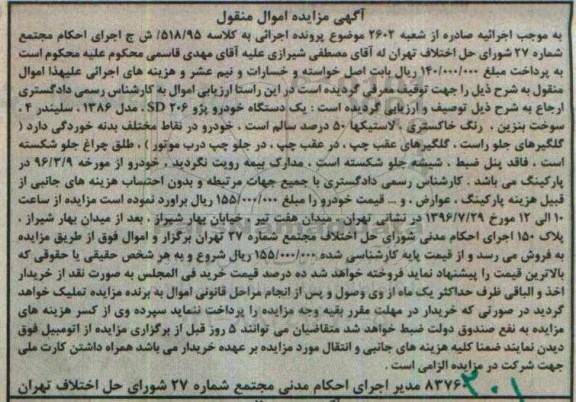 آگهی مزایده اموال منقول
به موجب اجرائیه صادره از شعبه ۲۶۰۲ موضوع پرونده اجرائی به کلاسه ۵۱۸/۹۵/ ش ج اجرای احکام مجتمع
شماره ۲۷ شورای حل اختلاف تهران له آقای مصطفی شیرازی علیه آقای مهدی قاسمی محکوم علیه محکوم است
به پرداخت مبلغ ۱۴۰/۰۰۰/۰۰۰ ریال بابت اصل خواسته و خسارات و نیم عشر و هزینه های اجرائی علیهذا اموال
منقول به شرح ذیل را جهت توقیف معرفی گردیده است در این راستا ارزیابی اموال به کارشناس رسمی دادگستری
ارجاع به شرح ذیل توصیف و ارزیابی گردیده است : یک دستگاه خودرو پژو ۲۰۶ SD ، مدل ۱۳۸۶ ، سلیندر ۴ ،
سوخت بنزین ، رنگ خاکستری ، لاستیکها ۵۰ درصد سالم است . خودرو در نقاط مختلف بدنه خوردگی دارد (
گلگیرهای جلو راست ، گلگیرهای عقب چپ ، در عقب چپ ، در جلو چپ درب موتور ) ، طلق چراغ جلو شکسته
است ، فاقد پنل ضبط ، شیشه جلو شکسته است . مدارک بیمه رویت نگردید ، خودرو از مورخه ۹۶/۳/۹ در
پارکینگ می باشد . کارشناس رسمی دادگستری با جمیع جهات مرتبطه و بدون احتساب هزینه های جانبی از
قبیل هزینه پارکینگ ، عوارض ، و ... قیمت خودرو را مبلغ ۱۵۵/۰۰۰/۰۰۰ ریال براورد نموده است مزایده از ساعت
۱۰ الی ۱۲ مورخ ۱۳۹۶/۷/۲۹ در نشانی تهران ، میدان هفت تیر ، خیابان بهار شیراز ، بعد از میدان بهار شیراز ،
پلاک ۱۵۰ اجرای احکام مدنی شورای حل اختلاف مجتمع شماره ۲۷ تهران برگزار و اموال فوق از طریق مزایده
به فروش می رسد و از قیمت پایه کارشناسی شده ۱۵۵/۰۰۰/۰۰۰ ریال شروع و به هر شخص حقیقی یا حقوقی که
بالاترین قیمت را پیشنهاد نماید فروخته خواهد شد ده درصد قیمت خرید فی المجلس به صورت نقد از خریدار
اخذ و الباقی ظرف حداکثر یک ماه از وی وصول و پس از انجام مراحل قانونی اموال به برنده مزایده تملیک خواهد
گردید در صورتی که خریدار در مهلت مقرر بقیه وجه مزایده را پرداخت ننماید سپرده وی از کسر هزینه های
مزایده به نفع صندوق دولت ضبط خواهد شد متقاضیان می توانند ۵ روز قبل از برگزاری مزایده از اتومبیل فوق
دیدن نمایند ضمنا کلیه هزینه های جانبی و انتقال مورد مزایده بر عهده خریدار می باشد همراه داشتن کارت ملی
جهت شرکت در مزایده الزامی است .
۸۳۷۶ مدیر اجرای احکام مدنی مجتمع شماره ۲۷ شورای حل اختلاف تهران